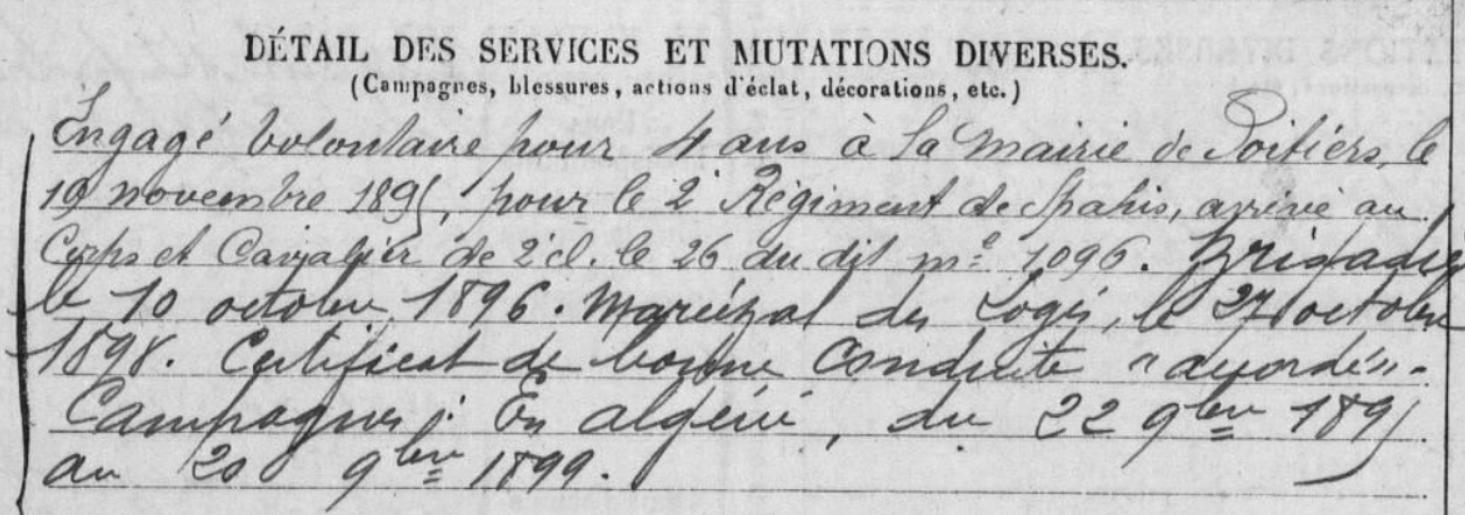 DÉTAIL DES SERVICES ET MUTATIONS DIVERSES.
(Campagnes, blessures, actions d'éclat, décorations, etc.)
Engagé volontaire pour 4 ans à la mairie de Poitiers, le
19 novembre 1895, pour le 2e Régiment de Spahis, arrivé au
Corps et Cavalier de 2e cl. le 26 du dit me 1096. Brigadier
le 10 octobre 1896. Maréchal des Logis, le 27 octobre
1898. Certificat de bonne conduite "accordé".
Campagnes : En Algérie, du 22 9bre 1895
au 20 9bre 1899.